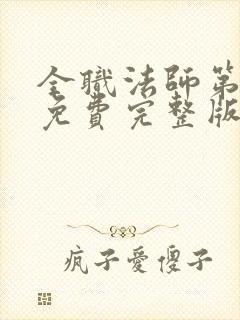 全職法師第
免費完整版
疯子愛傻子